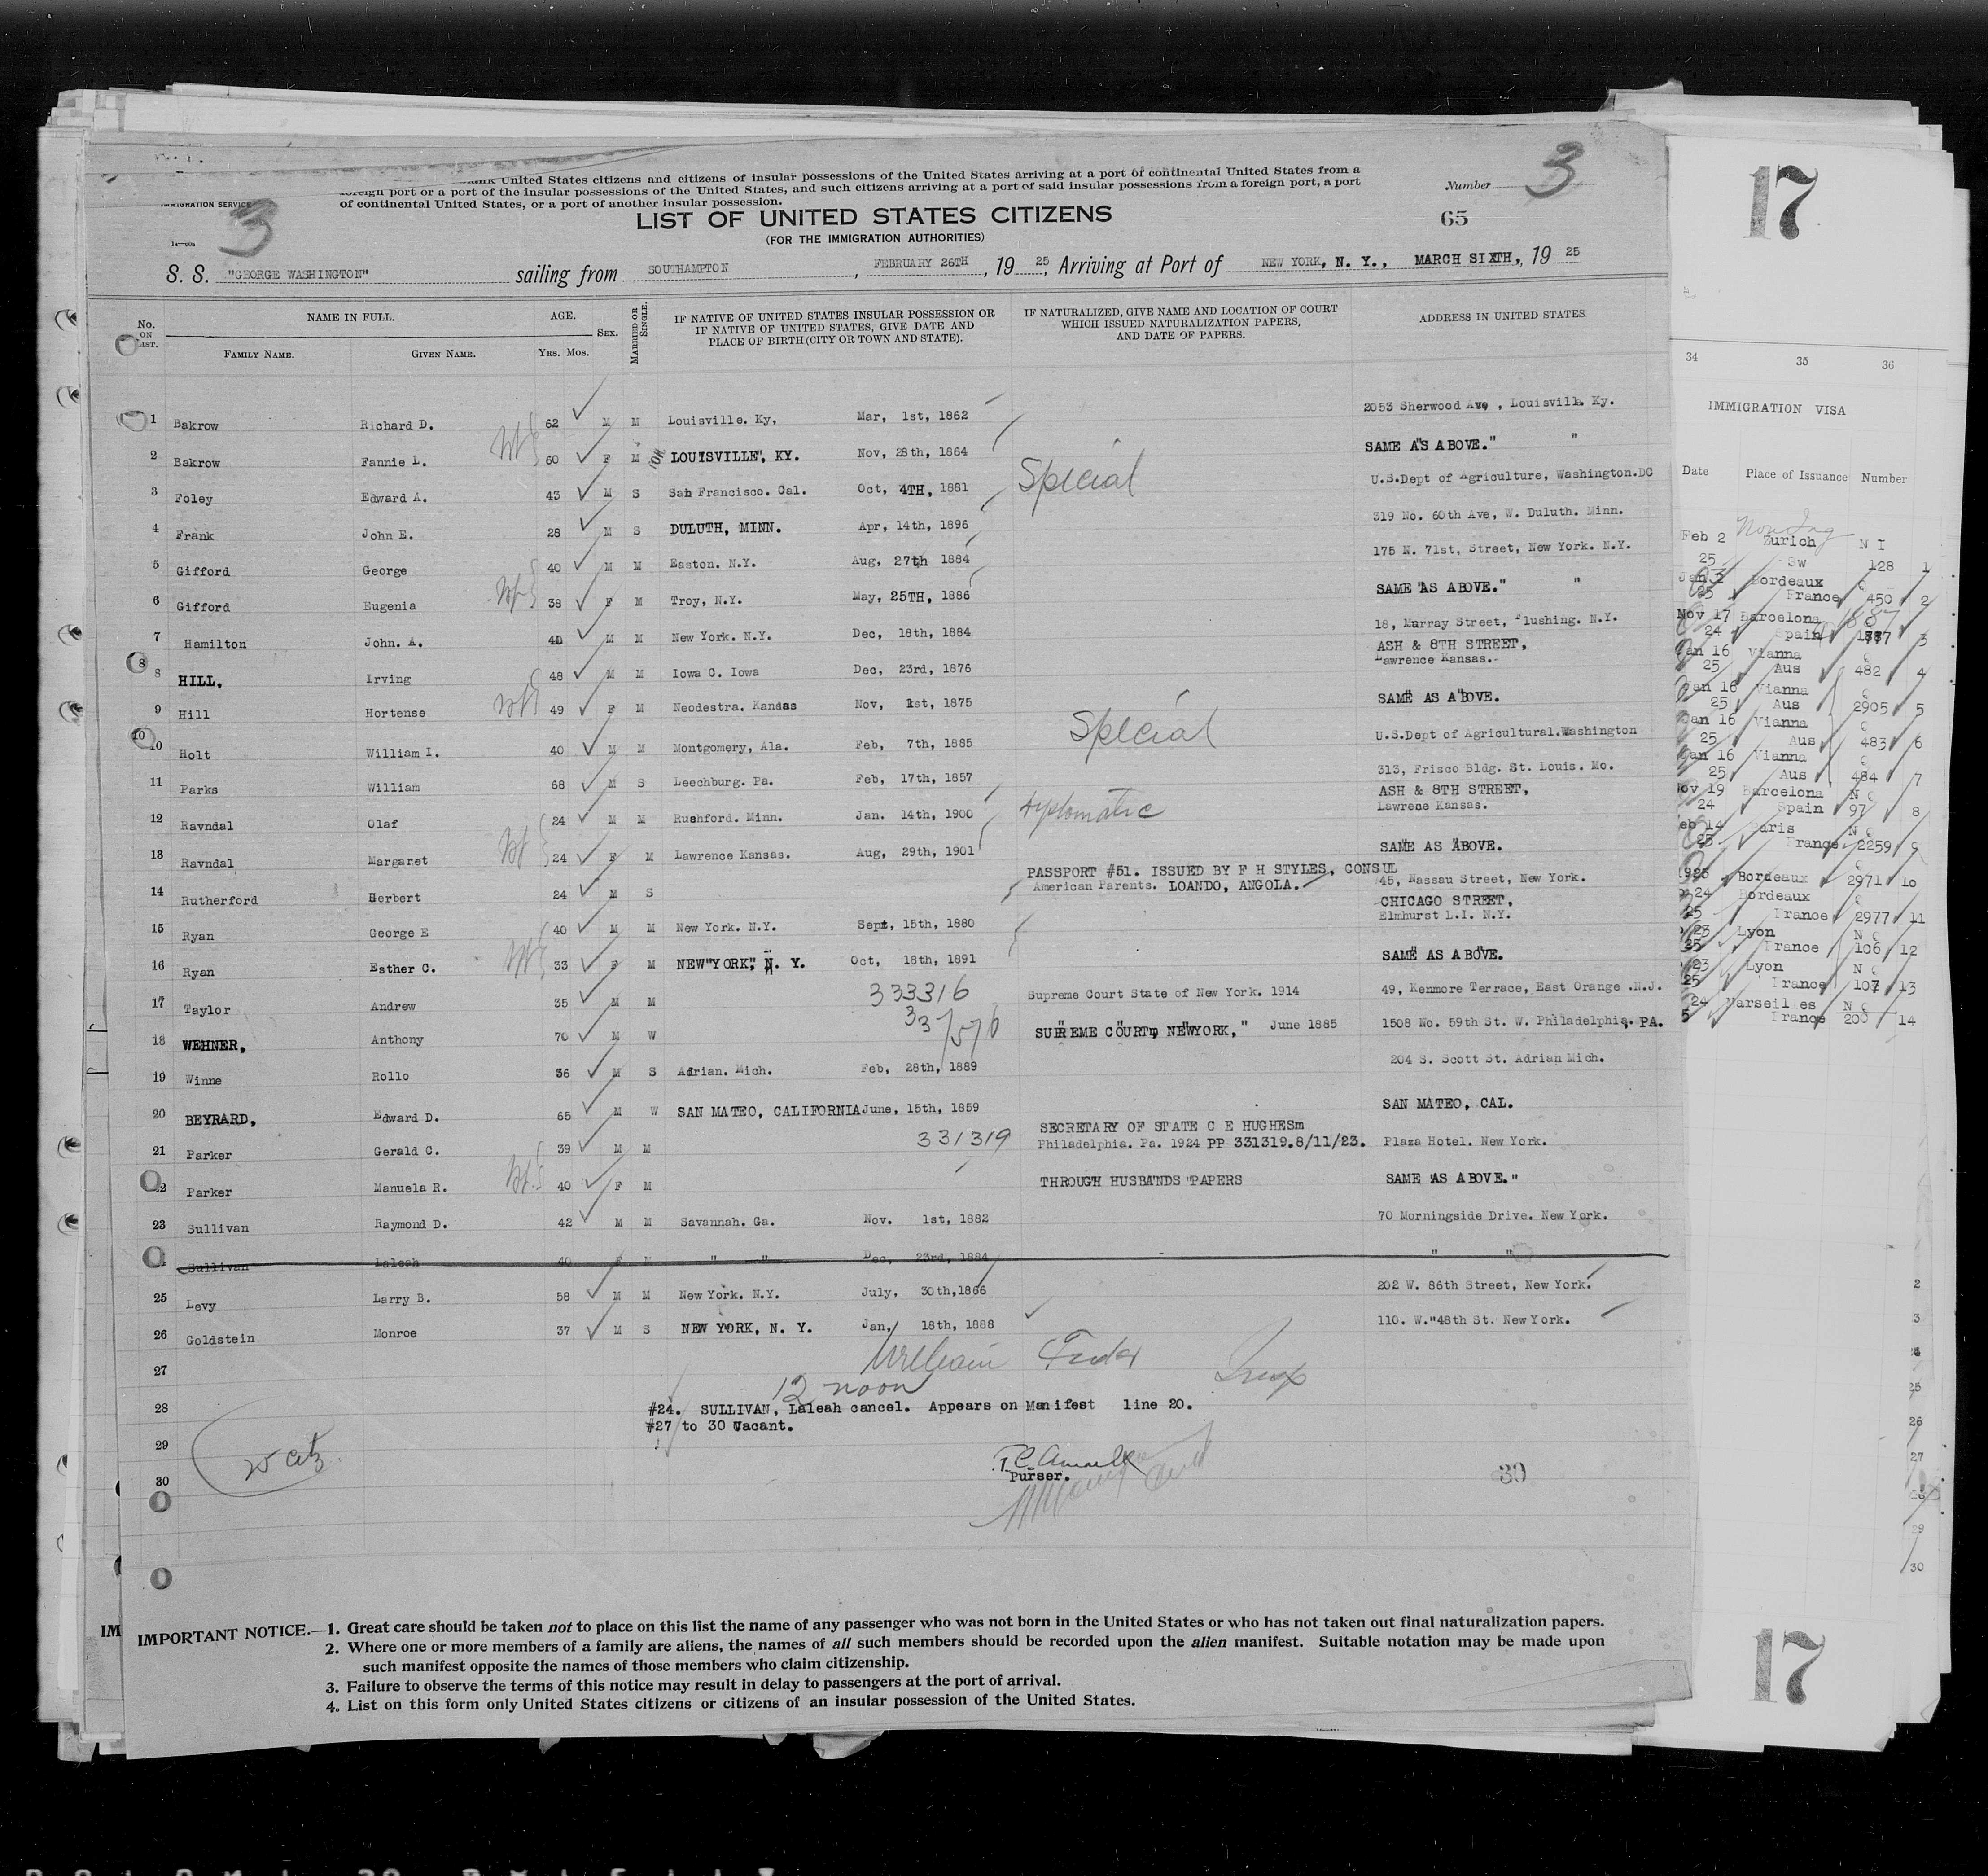 United States citizens and citizens of insular possessions of the United States arriving at a port of continental United States from a
foreign port or a port of the insular possessions of the United States, and such citizens arriving at a port of said insular possessions from a foreign port, a port
of continental United States, or a port of another insular possession.
IMMIGRATION SERVICE
3
Number 3
65
LIST OF UNITED STATES CITIZENS
(FOR THE IMMIGRATION AUTHORITIES)
S. S. "GEORGE WASHINGTON" sailing from SOUTHAMPTON, FEBRUARY 26TH, 19 25, Arriving at Port of NEW YORK, N. Y., MARCH SIXTH, 19 25
No. ON LIST. NAME IN FULL. FAMILY NAME. GIVEN NAME. AGE. YRS. MOS. SEX. MARRIED OR SINGLE. IF NATIVE OF UNITED STATES INSULAR POSSESSION OR IF NATIVE OF UNITED STATES, GIVE DATE AND PLACE OF BIRTH (CITY OR TOWN AND STATE). IF NATURALIZED, GIVE NAME AND LOCATION OF COURT WHICH ISSUED NATURALIZATION PAPERS, AND DATE OF PAPERS. ADDRESS IN UNITED STATES
1 Bakrow Richard D. 62 M M Louisville. Ky, Mar, 1st, 1862 2053 Sherwood Ave, Louisville. Ky.
2 Bakrow Fannie L. 60 F M LOUISVILLE, KY. Nov, 28th, 1864 SAME AS ABOVE." "
3 Foley Edward A. 43 M S San Francisco. Cal. Oct, 4TH, 1881 Special U.S.Dept of Agriculture, Washington.DC
4 Frank John E. 28 M S DULUTH, MINN. Apr, 14th, 1896 319 No. 60th Ave, W. Duluth. Minn.
5 Gifford George 40 M M Easton. N.Y. Aug, 27th 1884 175 N. 71st, Street, New York. N.Y.
6 Gifford Eugenia 38 F M Troy, N.Y. May, 25TH, 1886 SAME AS ABOVE." "
7 Hamilton John. A. 40 M M New York. N.Y. Dec, 18th, 1884 18, Murray Street, Flushing. N.Y.
8 HILL, Irving 48 M M Iowa C. Iowa Dec, 23rd, 1876 ASH & 8TH STREET, Lawrence Kansas.
9 Hill Hortense 49 F M Neodestra. Kansas Nov, 1st, 1875 SAME AS ABOVE.
10 Holt William I. 40 M M Montgomery, Ala. Feb, 7th, 1885 Special U.S.Dept of Agricultural.Washington
11 Parks William 68 M S Leechburg. Pa. Feb, 17th, 1857 313, Frisco Bldg. St. Louis. Mo.
12 Ravndal Olaf 24 M M Rushford. Minn. Jan. 14th, 1900 diplomatic ASH & 8TH STREET, Lawrece Kansas.
13 Ravndal Margaret 24 F M Lawrence Kansas. Aug, 29th, 1901 SAME AS ABOVE.
PASSPORT #51. ISSUED BY F H STYLES, CONSUL
14 Rutherford Herbert 24 M S American Parents. LOANDO, ANGOLA. 45, Nassau Street, New York.
15 Ryan George E 40 M M New York. N.Y. Sept, 15th, 1880 CHICAGO STREET, Elmhurst L.I. N.Y.
16 Ryan Esther C. 33 F M NEW YORK, N. Y. Oct, 18th, 1891 SAME AS ABOVE.
17 Taylor Andrew 35 M M 333316 Supreme Court State of New York. 1914 49, Kenmore Terrace, East Orange .N.J.
18 WEHNER, Anthony 70 M W SUPREME COURT, NEWYORK," June 1885 1508 No. 59th St. W. Philadelphia. PA.
19 Winne Rollo 36 M S Adrian. Mich. Feb, 28th, 1889 204 S. Scott St. Adrian Mich.
20 BEYRARD, Edward D. 65 M W SAN MATEO, CALIFORNIA June, 15th, 1859 SAN MATEO, CAL.
SECRETARY OF STATE C E HUGHESm
21 Parker Gerald C. 39 M M 331319 Philadelphia. Pa. 1924 PP 331319.8/11/23. Plaza Hotel. New York.
22 Parker Manuela R. 40 F M THROUGH HUSBANDS PAPERS SAME AS ABOVE."
23 Sullivan Raymond D. 42 M M Savannah. Ga. Nov. 1st, 1882 70 Morningside Drive. New York.
Sullivan Laleah 40 F M " " Dec, 23rd, 1884 " "
25 Levy Larry B. 58 M M New York. N.Y. July, 30th,1866 202 W. 86th Street, New York.
26 Goldstein Monroe 37 M S NEW YORK, N. Y. Jan, 18th, 1888 110. W."48th St. New York.
27
12 noon
28 #24. SULLIVAN, Laleah cancel. Appears on Manifest line 20.
#27 to 30 Vacant.
29
30
Purser.
30
IMPORTANT NOTICE.—1. Great care should be taken not to place on this list the name of any passenger who was not born in the United States or who has not taken out final naturalization papers.
2. Where one or more members of a family are aliens, the names of all such members should be recorded upon the alien manifest. Suitable notation may be made upon
such manifest opposite the names of those members who claim citizenship.
3. Failure to observe the terms of this notice may result in delay to passengers at the port of arrival.
4. List on this form only United States citizens or citizens of an insular possession of the United States.
IM
17
34 35 36
IMMIGRATION VISA
Date Place of Issuance Number
Feb 2 Zurich N I
25 Sw 128 1
Jan 2 Bordeaux
25 France 450 2
Nov 17 Barcelona
24 Spain 3
Jan 16 Vianna
25 Aus 482 4
Jan 16 Vianna
25 Aus 2905 5
Jan 16 Vianna
25 Aus 483 6
Jan 16 Vianna
25 Aus 484 7
Nov 19 Barcelona N
24 Spain 97 8
Feb 14 Paris N
25 France 2259 9
Bordeaux 2971 10
24 Bordeaux
25 France 2977 11
23 Lyon N
25 France 106 12
23 Lyon N
25 France 107 13
24 Marseilles N
France 200 14
2
3
25
26
27
29
30
17